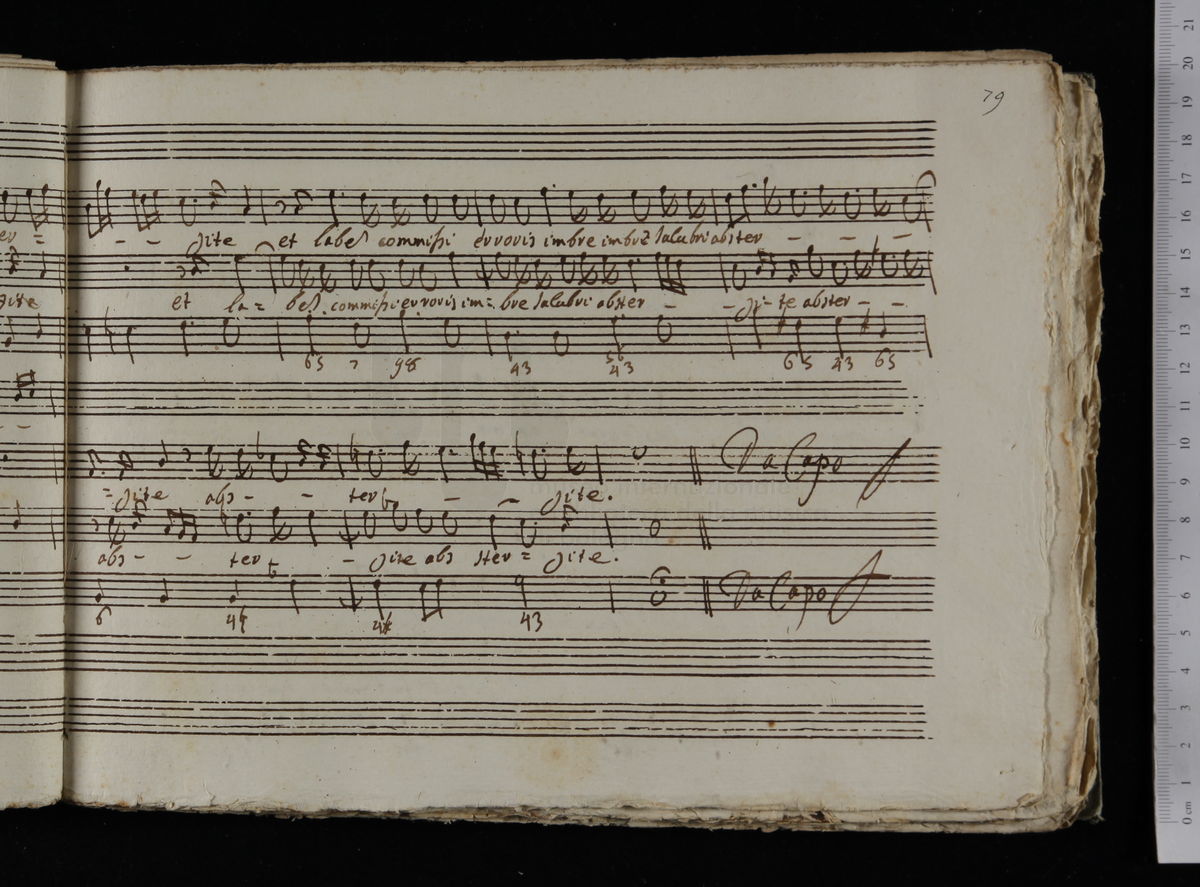 79
er = - - gite et labes commissi erroris imbre imbre salubri abster - - -
gite et la = bes commissi erroris im = bre salubri abster - - gi - te abster - -
65 7 98 43 56 43 65 43 65
= gite abs - - ter - - gite. Da Capo
abs - - ter - gite abs ster = gite.
6 4 43 Da Capo
0 cm 1 2 3 4 5 6 7 8 9 10 11 12 13 14 15 16 17 18 19 20 21